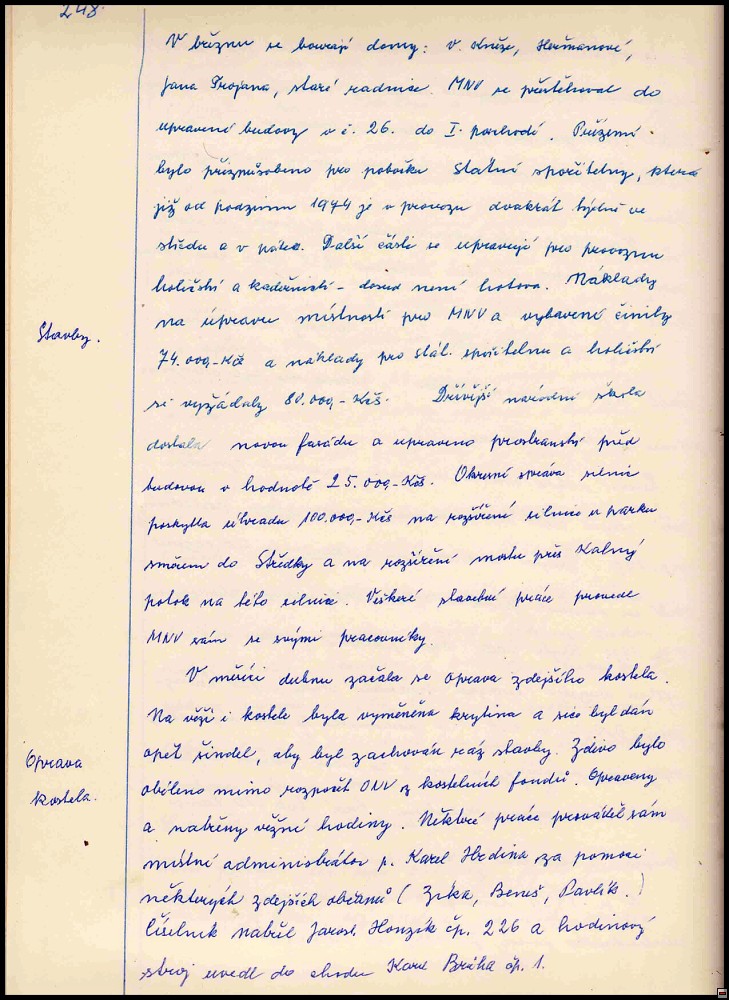 248
V březnu se bourají domy: V. Kněze, Heřmanové,
Jana Trojana, staré radnice. MNV se přestěhoval do
upravené budovy v č. 26. do I. poschodí. Přízemí
bylo přizpůsobeno pro pobočku Státní spořitelny, která
již od podzimu 1974 je v provozu dvakrát týdně ve
středu a v pátek. Další části se upravují pro provozovnu
holičství a kadeřnictví - dosud není hotova. Náklady
na úpravu místností pro MNV a vybavení činily
Stavby.
74.000,-Kčs a náklady pro stát. spořitelnu a holičství
si vyžádaly 80.000,- Kčs. Dřívější národní škola
dostala novou fasádu a upraveno prostranství před
budovou v hodnotě 25.000,-Kčs. Okresní správa silnic
poskytla úhradu 100.000,-Kčs na rozšíření silnice u parku
směrem do Středky a na rozšíření mostu přes Kalný
potok na této silnici. Veškeré stavební práce provede
MNV sám se svými pracovníky.
V měsíci dubnu začala se oprava zdejšího kostela.
Na věži i kostele byla vyměněna krytina a sice byl dán
opět šindel, aby byl zachován ráz stavby. Zdivo bylo
Oprava
kostela.
obíleno mimo rozpočet ONV z kostelních fondů. Opraveny
a natřeny věžní hodiny. Některé práce prováděl sám
místní administrátor p. Karel Hrdina za pomoci
některých zdejších občanů (Zika, Beneš, Pavlík.)
Číselník natřel Jarosl. Honzík čp. 226 a hodinový
stroj uvedl do chodu Karel Bréha čp. 1.